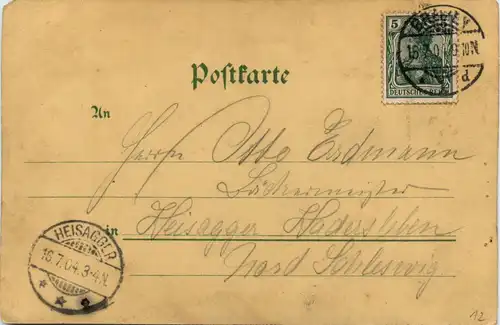 5
DEUTSCHES REICH
Postkarte
An
Herrn Otto Erdmann
Bäckermeister
in Heisagger Hadersleben
Nord Schleswig
HEISAGGER
16.7.04. 3-4N.
12